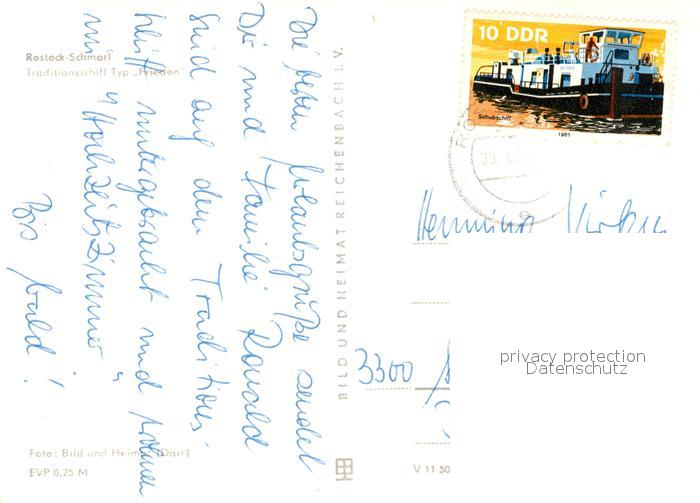 Rostock-Schmarl
Traditionsschiff Typ „Frieden"
Die besten Urlaubsgrüße sendet
Dir und Familie Ronald
Sind auf dem Traditions-
schiff untergebracht und wohnen
im "Hochzeitszimmer"
Bis bald!
Foto: Bild und Heimat (Darr)
EVP 0,25 M
BILD UND HEIMAT REICHENBACH I. V.
V 11 50
10 DDR
Schubschiff
1981
RO
Hermann
3300
privacy protection
Datenschutz